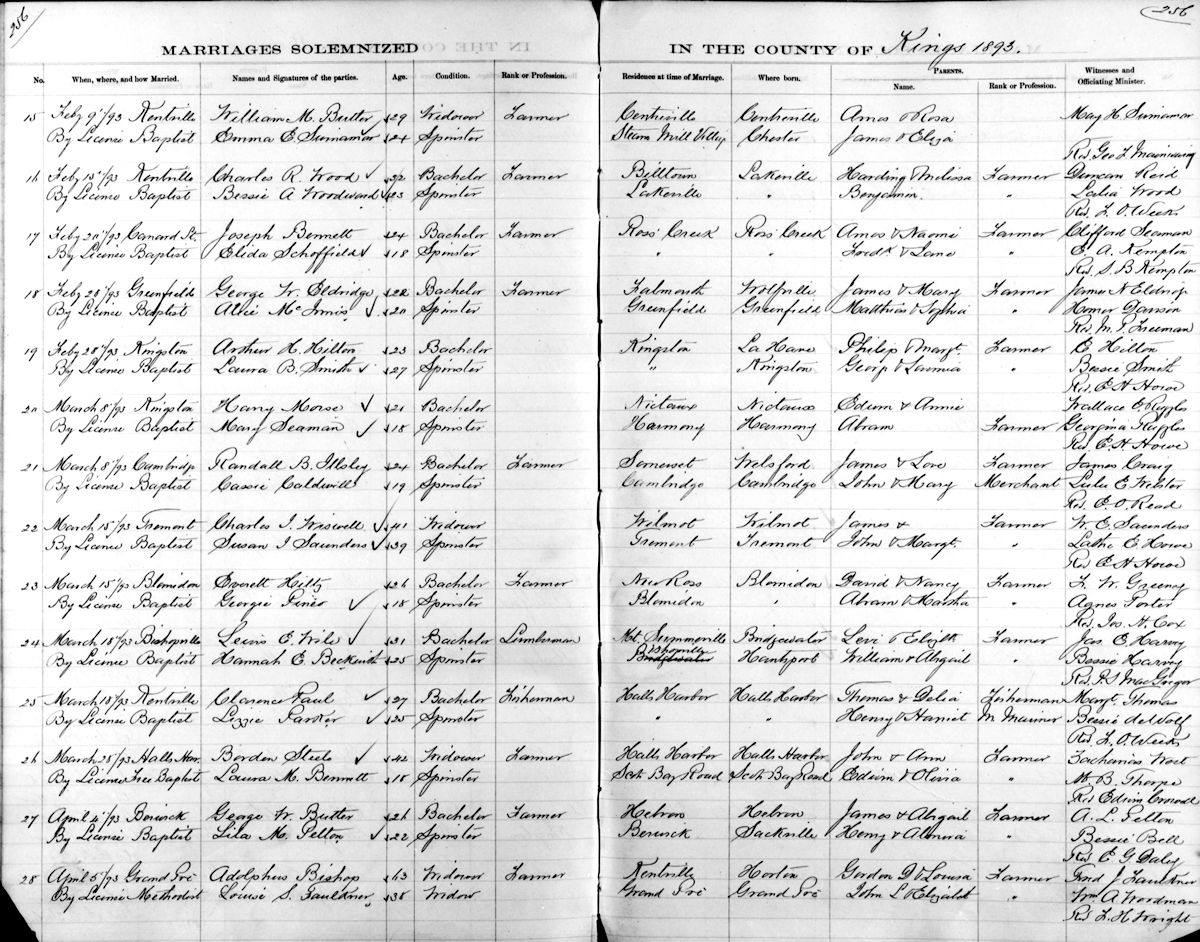 256
256
MARRIAGES SOLEMNIZED IN THE COUNTY OF Kings 1893.
No. When, where, and how Married. Names and Signatures of the parties. Age. Condition. Rank or Profession. Residence at time of Marriage. Where born. PARENTS. Name. Rank or Profession. Witnesses and Officiating Minister.
15 Feby 9"/93 Kentville William M. Butler 29 Widower Farmer Centreville Centreville Amos & Rosa May H.
By License Baptist Emma E. 24 Spinster Steam Mill Village Chester James & Eliza
Rev Geo
16 Feby 15"/93 Kentville Charles R. Wood 32 Bachelor Farmer Billtown Lakeville Harding & Melissa Farmer Duncan Reid
By License Baptist Bessie A Woodward 23 Spinster Lakeville " Benjamin " Lalia Wood
Rev. L. O. Weeks
17 Feby 20"/93 Canard St. Joseph Bennett 24 Bachelor Farmer Ross Creek Ross Creek Amos & Naomi Farmer Clifford Seaman
By License Baptist Elida Schoffield 18 Spinster " " Fredk & Jane E. A. Kempton
Rev. S. B Kempton
18 Feby 28"/93 Greenfield George W. Eldridge 22 Bachelor Farmer Falmouth Wolfville James & Mary Farmer James N Eldridge
By License Baptist Alice McInnis 20 Spinster Greenfield Greenfield Matthias & Sophia " Homer Davison
Rev. M. P. Freeman
19 Feby 28"/93 Kingston Arthur H. Hilton 23 Bachelor Kingston La Have Philip & Margt. Farmer E Hilton
By License Baptist Laura B. Smith 27 Spinster " Kingston George & " Bessie Smith
Rev. E H Howe
20 March 8"/93 Kingston Harry Morse 21 Bachelor Nictaux Nictaux Edwin & Annie Wallace E. Ruggles
By License Baptist Mary Seaman 18 Spinster Harmony Harmony Abram Farmer Georgina Ruggles
Rev. E. H. Howe
21 March 8"/93 Cambridge Randall B. Illsley 24 Bachelor Farmer Somerset Welsford James & Love Farmer James Craig
By License Baptist Cassie Caldwell 19 Spinster Cambridge Cambridge John & Mary Merchant Lulu E Webster
Rev. E. O. Read
22 March 15"/93 Tremont Charles I. Wiswell 41 Widower Wilmot Wilmot James & Farmer W. E. Saunders
By License Baptist Susan I Saunders 39 Spinster Tremont Tremont John & Margt. " E Howe
Rev E H Howe
23 March 15"/93 Blomidon Everett Hiltz 26 Bachelor Farmer New Ross Blomidon David & Nancy Farmer
By License Baptist Georgie Pineo 18 Spinster Blomidon " Abram & Marsha " Agnes Porter
Rev. Jos. N. Cox
24 March 18"/93 Bishopville Lewis E. Wile 31 Bachelor Lumberman Mt. Summerville Bridgewater Levi & Elizth Farmer Jas. E Harvey
By License Baptist Hannah E. Beckwith 25 Spinster Bishopville Hantsport William & Abigail " Bessie Harvey
Rev. P. S MacGregor
25 March 18"/93 Kentville Clarence Paul 27 Bachelor Fisherman Halls Harbor Halls Harbor Thomas & Delia Fisherman Margt. Thomas
By License Baptist Lizzie 25 Spinster " " Henry & Harriet M. Mariner Bessie deWolf
Rev. L. O. Weeks
26 March 25"/93 Halls Har. Borden Steele 42 Widower Farmer Halls Harbor Halls Harbor John & Ann Farmer Zacheriah
By License Free Baptist Laura M. Bennett 18 Spinster Scots Bay Road Scots Bay Road Edwin & Olivia " B. Thorpe
Rev Edwin
27 April 4"/93 Berwick George W. Butler 26 Bachelor Farmer Hebron Hebron James & Abigail Farmer A. L. Pelton
By License Baptist Lila M. Pelton 22 Spinster Berwick Sackville Henry & Almira " Bessie Bell
Rev. E G Daley
28 April 5"/93 Grand Pré Adolphus Bishop 63 Widower Farmer Kentville Horton Gordon D & Louisa Farmer Fred J. Faulkner
By License Methodist Louise S. Fauldner 38 Widow Grand Pré Grand Pré John L Elizabt " Wm A. Wordman
Rev. L. H. Wright